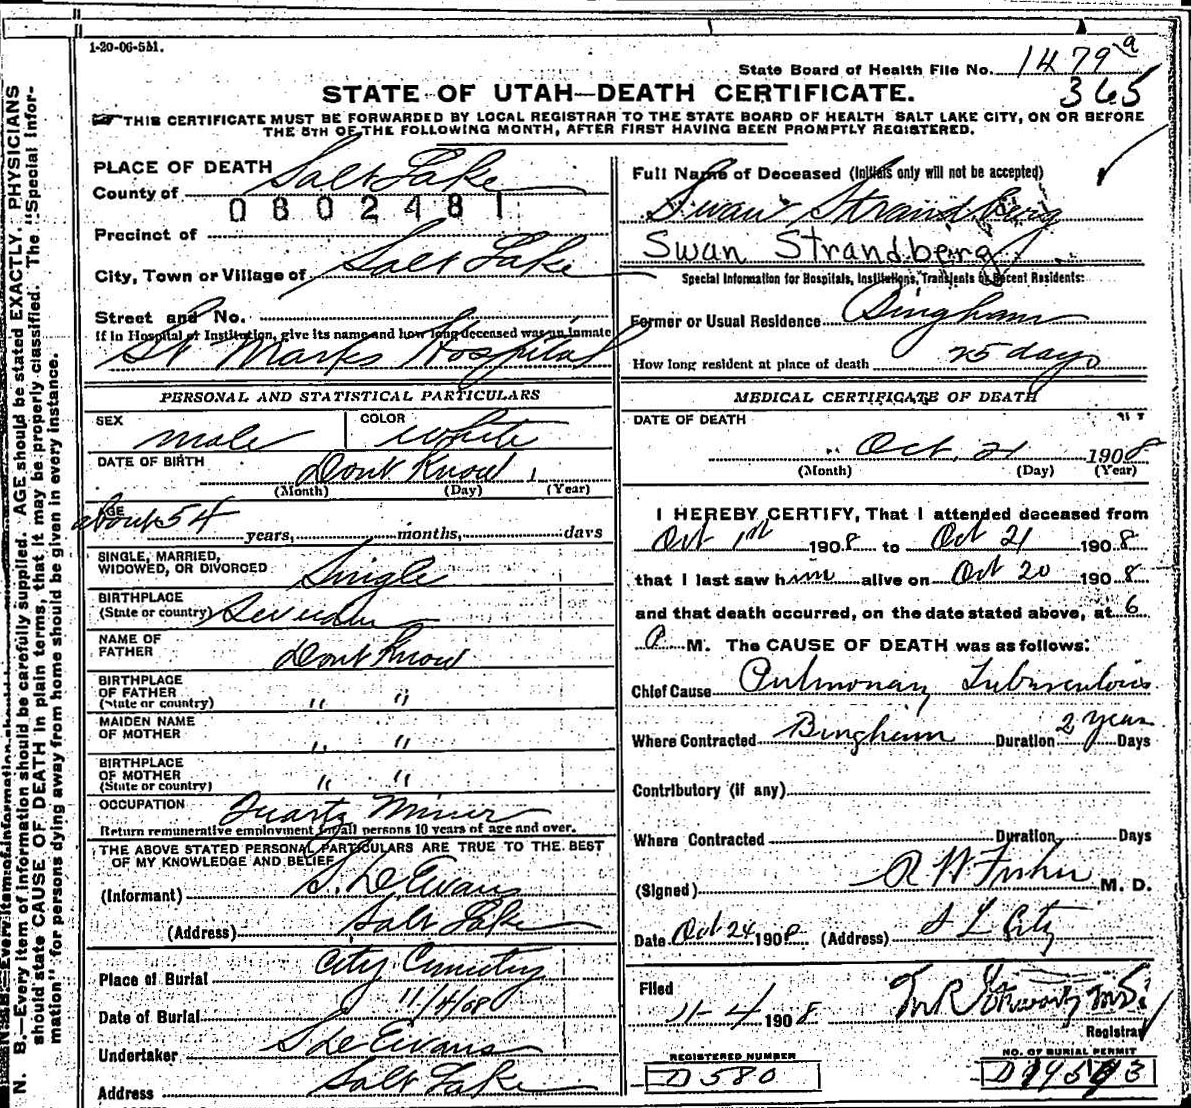 1-20-06-5M.
State Board of Health File No. 1479 a
365
STATE OF UTAH—DEATH CERTIFICATE.
THIS CERTIFICATE MUST BE FORWARDED BY LOCAL REGISTRAR TO THE STATE BOARD OF HEALTH SALT LAKE CITY, ON OR BEFORE
THE 5TH OF THE FOLLOWING MONTH, AFTER FIRST HAVING BEEN PROMPTLY REGISTERED.
N. B.—Every item of information should be carefully supplied. AGE should be stated EXACTLY. PHYSICIANS
should state CAUSE OF DEATH in plain terms, that it may be properly classified. The "Special Infor-
mation" for persons dying away from home should be given in every instance.
PLACE OF DEATH
County of Salt Lake
0802481
Precinct of
City, Town or Village of Salt Lake
Street and No.
If in Hospital or Institution, give its name and how long deceased was an inmate
St Marks Hospital
PERSONAL AND STATISTICAL PARTICULARS
SEX male COLOR white
DATE OF BIRTH Dont Know 1
(Month) (Day) (Year)
AGE about 54
years, months, days
SINGLE, MARRIED,
WIDOWED, OR DIVORCED Single
BIRTHPLACE
(State or country) Sweden
NAME OF
FATHER Dont Know
BIRTHPLACE
OF FATHER
(State or country) " "
MAIDEN NAME
OF MOTHER " "
BIRTHPLACE
OF MOTHER
(State or country) " "
OCCUPATION Quartz Miner
Return remunerative employment for all persons 10 years of age and over.
THE ABOVE STATED PERSONAL PARTICULARS ARE TRUE TO THE BEST
OF MY KNOWLEDGE AND BELIEF
(Informant) S. De Evans
(Address) Salt Lake
Place of Burial City Cemetry
Date of Burial 11/4/08
Undertaker S De Evans
Address Salt Lake
Full Name of Deceased (Initials only will not be accepted)
Swan Strandberg
Swan Strandberg
Special Information for Hospitals, Institutions, Transients or Recent Residents:
Former or Usual Residence Bingham
How long resident at place of death 25 days
MEDICAL CERTIFICATE OF DEATH
DATE OF DEATH
Oct. 21 1908
(Month) (Day) (Year)
I HEREBY CERTIFY, That I attended deceased from
Oct 1st 1908 to Oct 21 1908
that I last saw him alive on Oct 20 1908
and that death occurred, on the date stated above, at 6
P M. The CAUSE OF DEATH was as follows:
Chief Cause Pulmonary Tuberculosis
Where Contracted Bingham Duration 2 years Days
Contributory (if any)
Where Contracted Duration Days
(Signed) R W Fisher M. D.
Date Oct 24 1908 (Address) S L City
Filed
11-4 1908
Registrar
REGISTERED NUMBER
D 580
NO. OF BURIAL PERMIT